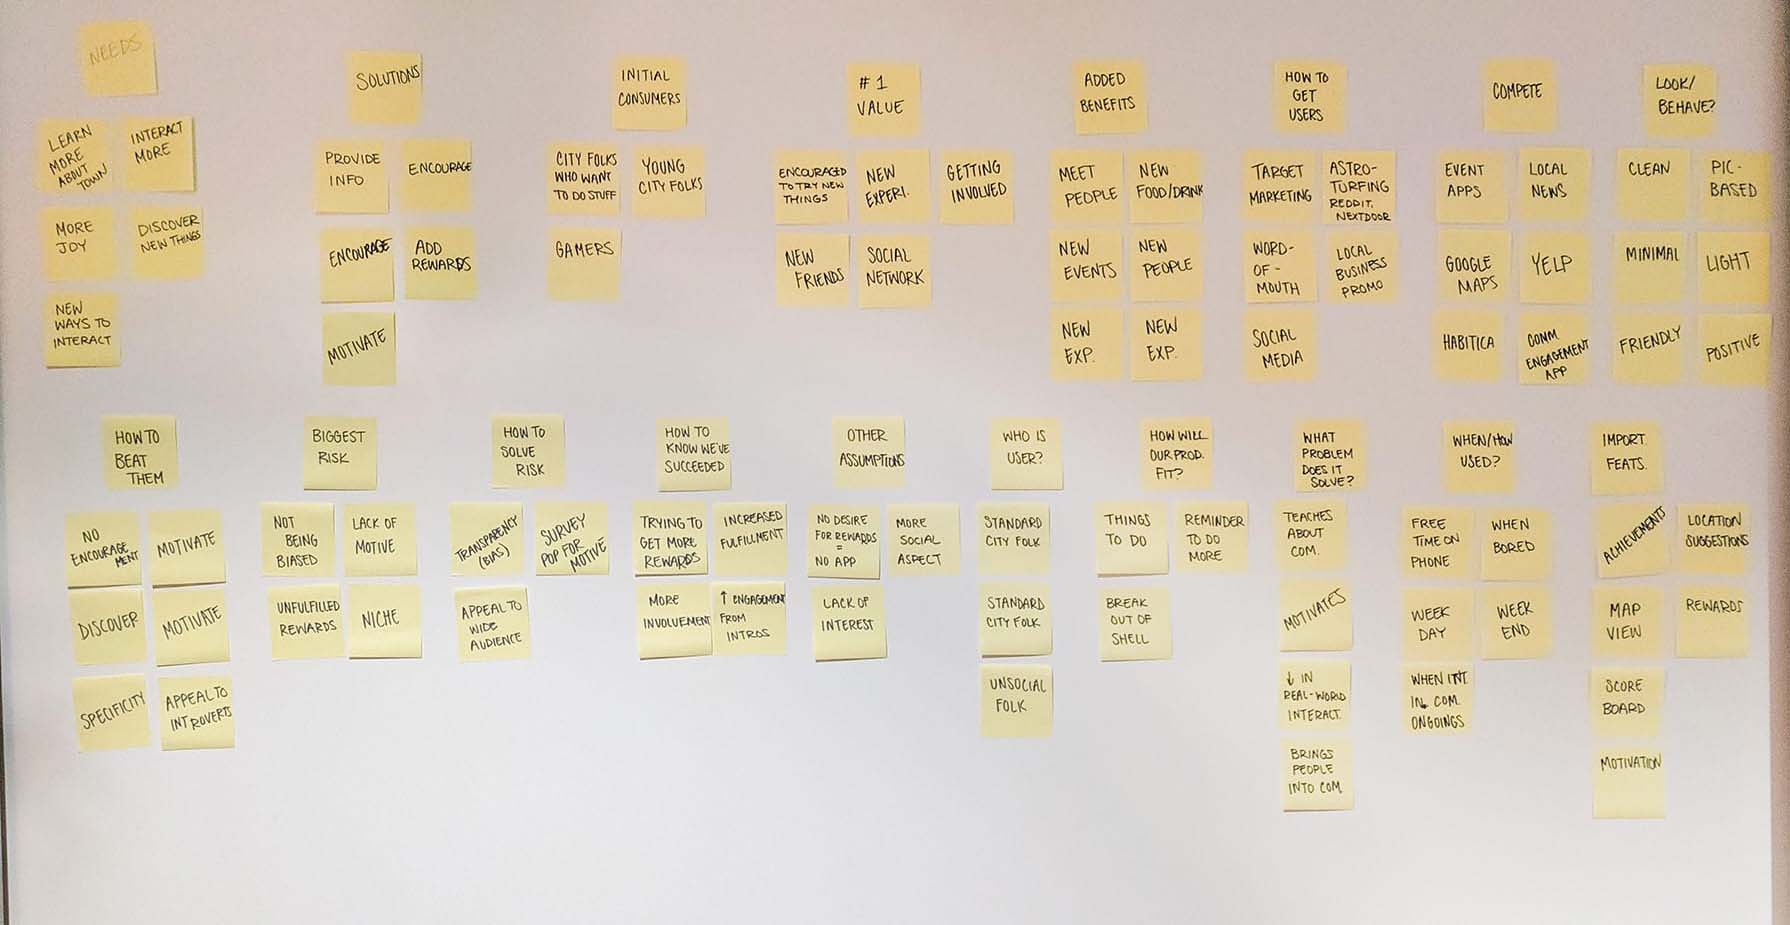 NEEDS
LEARN
MORE
ABOUT
TOWN
INTERACT
MORE
MORE
JOY
DISCOVER
NEW THINGS
NEW
WAYS TO
INTERACT
SOLUTIONS
PROVIDE
INFO
ENCOURAGE
ENCOURAGE
ADD
REWARDS
MOTIVATE
INITIAL
CONSUMERS
CITY FOLKS
WHO WANT
TO DO STUFF
YOUNG
CITY FOLKS
GAMERS
# 1
VALUE
ENCOURAGED
TO TRY NEW
THINGS
NEW
EXPERI.
GETTING
INVOLVED
NEW
FRIENDS
SOCIAL
NETWORK
ADDED
BENEFITS
MEET
PEOPLE
NEW
FOOD/DRINK
NEW
EVENTS
NEW
PEOPLE
NEW
EXP.
NEW
EXP.
HOW TO
GET
USERS
TARGET
MARKETING
ASTRO-
TURFING
REDDIT,
NEXTDOOR
WORD-
OF-
MOUTH
LOCAL
BUSINESS
PROMO
SOCIAL
MEDIA
COMPETE
EVENT
APPS
LOCAL
NEWS
GOOGLE
MAPS
YELP
HABITICA
COMM.
ENGAGEMENT
APP
LOOK/
BEHAVE?
CLEAN
PIC-
BASED
MINIMAL
LIGHT
FRIENDLY
POSITIVE
HOW TO
BEAT
THEM
NO
ENCOURAGE
MENT
MOTIVATE
DISCOVER
MOTIVATE
SPECIFICITY
APPEAL TO
INTROVERTS
BIGGEST
RISK
NOT
BEING
BIASED
LACK OF
MOTIVE
UNFULFILLED
REWARDS
NICHE
HOW TO
SOLVE
RISK
TRANSPARENCY
(BIAS)
SURVEY
POP FOR
MOTIVE
APPEAL TO
WIDE
AUDIENCE
HOW TO
KNOW WE'VE
SUCCEEDED
TRYING TO
GET MORE
REWARDS
INCREASED
FULFILLMENT
MORE
INVOLVEMENT
↑ ENGAGEMENT
FROM
INTROS
OTHER
ASSUMPTIONS
NO DESIRE
FOR REWARDS
=
NO APP
MORE
SOCIAL
ASPECT
LACK OF
INTEREST
WHO IS
USER?
STANDARD
CITY FOLK
STANDARD
CITY FOLK
UNSOCIAL
FOLK
HOW WILL
OUR PROD.
FIT?
THINGS
TO DO
REMINDER
TO DO
MORE
BREAK
OUT OF
SHELL
WHAT
PROBLEM
DOES IT
SOLVE?
TEACHES
ABOUT
COM.
MOTIVATES
↓ IN
REAL-WORLD
INTERACT.
BRINGS
PEOPLE
INTO COM.
WHEN/HOW
USED?
FREE
TIME ON
PHONE
WHEN
BORED
WEEK
DAY
WEEK
END
WHEN INT.
IN COM.
ONGOINGS
IMPORT.
FEATS.
ACHIEVEMENTS
LOCATION
SUGGESTIONS
MAP
VIEW
REWARDS
SCORE
BOARD
MOTIVATION